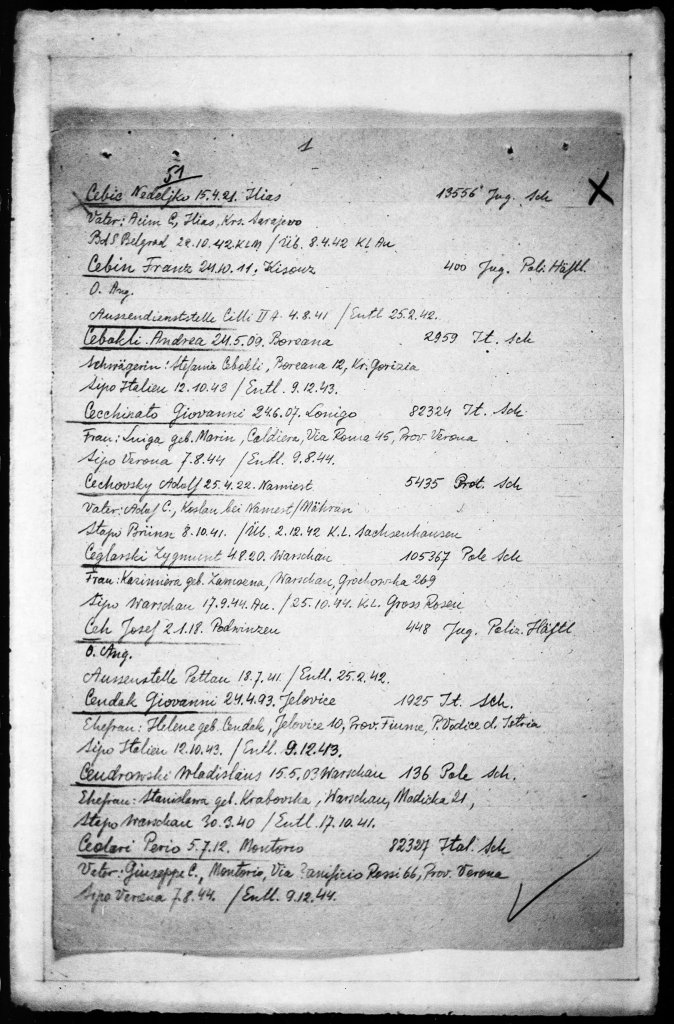 1
51
Cebic Nedeljko 15.4.21. Ilias 13556 Jug. Sch X
Vater: Acim C., Ilias, Krs. Sarajevo
BdS Belgrad 22.10.42 KLM / Üb. 8.4.42 KL Au
Cebin Franz 24.10.11. 400 Jug. Poli. Häftl.
O. Ang.
Aussendienststelle Cilli II A. 4.8.41 / Entl 25.2.42.
Cebokli Andrea 24.5.09. Boreana 2959 It. Sch
Schwägerin: Stefania Cebokli, Boreana 12, Kr. Gorizia
Sipo Italien 12.10.43 / Entl. 9.12.43.
Cecchinato Giovanni 24.6.07. Lonigo 82324 It. Sch
Frau: Luiga geb. Marin, Caldiera, Via Roma 45, Prov. Verona
Sipo Verona 7.8.44 / Entl. 9.8.44.
Cechovsky Adolf 25.4.22. Namiest 5435 Prot. Sch
Vater: Adolf C., Koslau bei Namest/Mähren
Stapo Brünn 8.10.41. / Üb. 2.12.42 K.L. Sachsenhausen
Ceglarski Zygmunt 4.8.20. Warschau 105367 Pole Sch
Frau: Kazimiera geb. Zamoena, Warschau, Grochowska 269
Sipo Warschau 17.9.44. Au. / 25.10.44. K.L. Gross Rosen
Ceh Josef 2.1.18. Podwinzen 448 Jug. Poliz. Häftl
O. Ang.
Aussenstelle Pettau 18.7.41. / Entl. 25.2.42.
Cendak Giovanni 24.4.93. Jelovice 1925 It. Sch.
Ehefrau: Helene geb. Cendak, Jelovice 10, Prov. Fiume, P. Vodice d. Istria
Sipo Italien 12.10.43. / Entl. 9.12.43.
Cendrowski Wladislaus 15.5.03 Warschau 136 Pole Sch.
Ehefrau: Stanislawa geb. Krabovska, Warschau, Madicka 21,
Stapo Warschau 30.3.40 / Entl. 17.10.41.
Ceolari Perio 5.7.12. Montorio 82327 Ital. Sch
Vater: Giuseppe C., Montorio, Via Rossi 66, Prov. Verona
Sipo Verona 7.8.44. / Entl. 9.12.44.